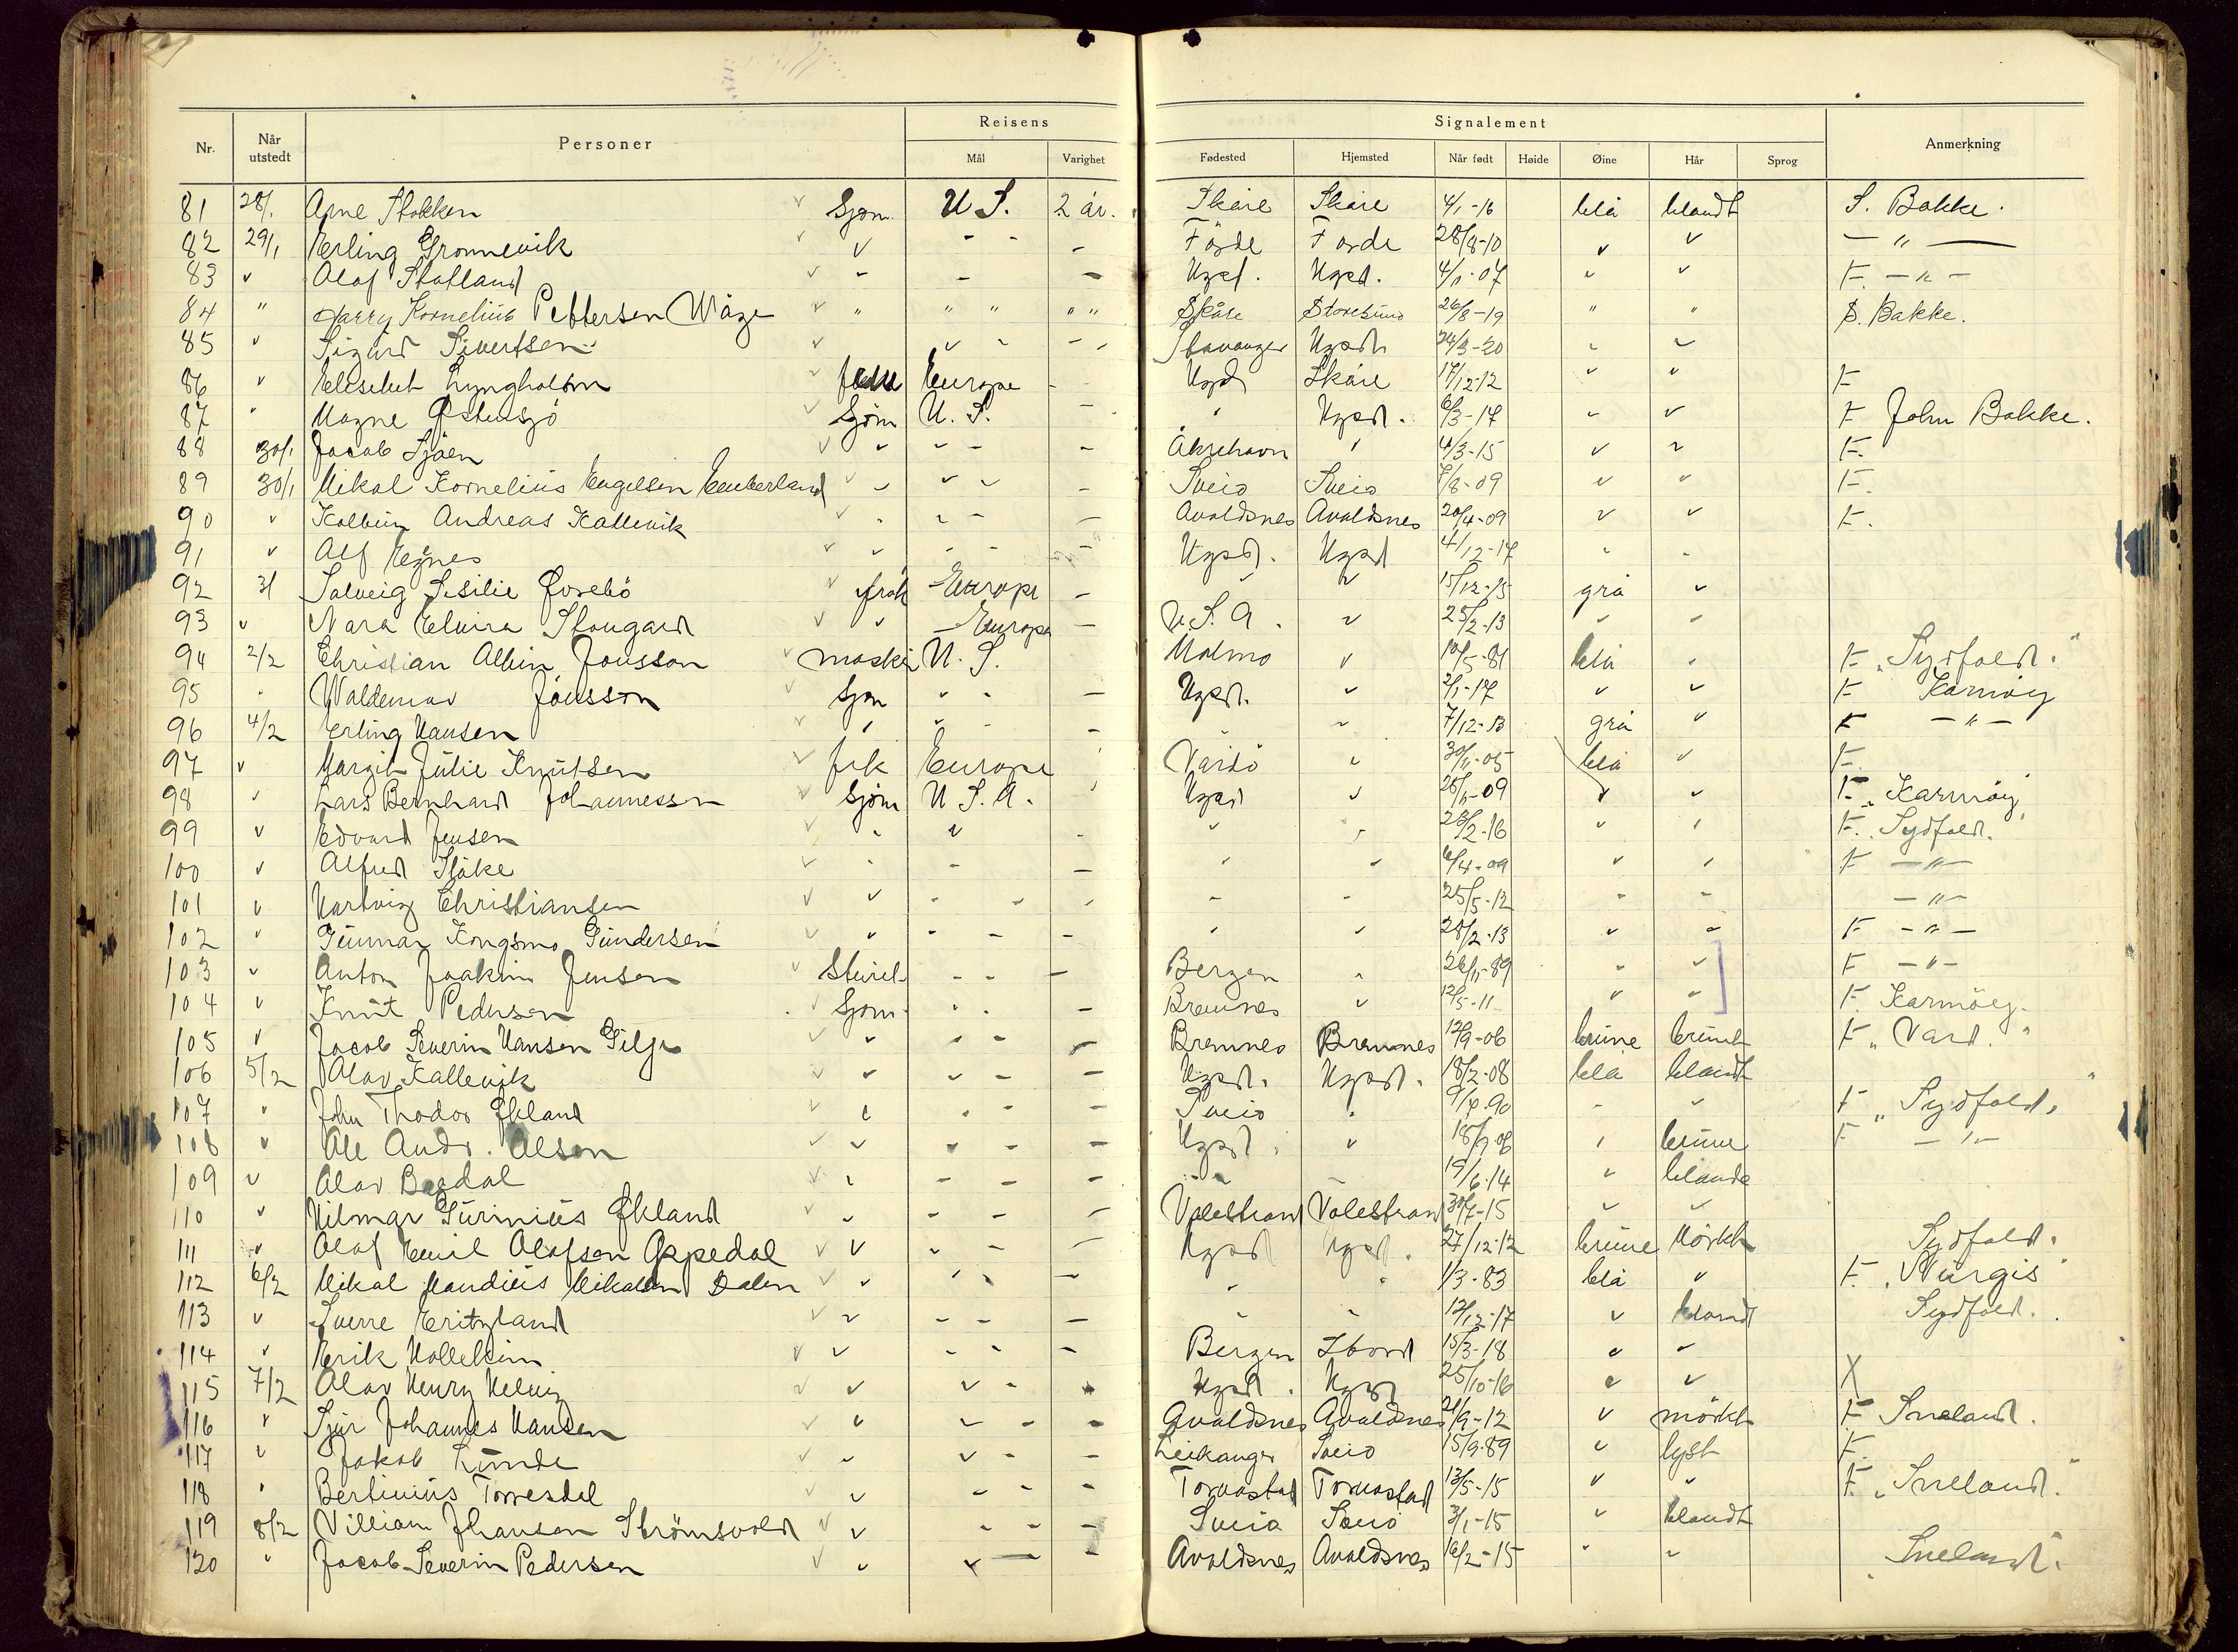 Reisens Signalement
Nr. Når utstedt Personer Mål Varighet Fødested Hjemsted Når født Høide Øine Hår Sprog Anmerkning
81 28/1 Arne Stokken Sjøm. U S. 2 år. Skåre Skåre 4/1-16 blå blandt S. Bakke.
82 29/1 Erling Grønnevik v - - - Förde Förde 28/8-10 v v — " —
83 v Olaf Stutland - - - Hgsd. Hgsd. 4/1-07 v v F. - " -
84 " Harry Kornelius Pettersen Våge " " " " " Skåre Storesund 26/8-19 " " S. Bakke.
85 v Sigurd Sivertsen v - - - Stavanger Hgsd 24/3-20 - v
86 v Elisebet Lyngholm frue Europa - Hgsd Skåre 17/12-12 v v F
87 " Magne Østensjö Sjöm U. S. - " Hgsd. 6/3-17 - v F John Bakke.
88 30/1 Jacob Sjöen v - - - Åkrehavn " 4/3-15 v v F.
89 30/1 Mikal Kornelius Engelsen Emberland v v v - Sveio Sveio 7/8-09 v v F.
90 v Kolbein Andreas Kallevik " v - - Avaldsnes Avaldsnes 20/4-09 v v F.
91 v Alf Egnes v - - - Hgsd. Hgsd 4/12-17 - -
92 31 Solveig Sesilie Øvrebö frök Europa - " v 15/12-15 grå v
93 v Nara Elvira Stougard v Europa - U. S. A. v 25/2-13 v -
94 2/2 Christian Albin Jonsson maski U. S. Malmö v 10/5-81 blå - F "Sydfold."
95 - Waldemar Jönsson Sjm v - - Hgsd. v 2/1-17 v v F Karmöy
96 4/2 Erling Hansen " v - - " - 7/12-13 grå v F - " -
97 v Margit Julie Knutsen frk Europa " Vardö v 30/11-05 blå v F.
98 v Lars Bernhard Johannessen Sjöm U S. A. " Hgsd v 28/11-09 v v F. "Karmöy"
99 v Edvard Jensen " v - " - 23/2-16 v " F. Sydfold.
100 v Alfred Ståke - - - " - 6/4-09 v " F - " -
101 v Hartvig Christiansen v - - - - - 25/5-12 - - - " -
102 " Gunnar Kongsmo Gundersen v - - - " v 28/2-13 v - F - " -
103 v Anton Joakim Jensen Stuert - - - Bergen " 26/11-89 - v F - " -
104 v Knut Pedersen Sjöm. - - - Bremnes v 12/5-11 v v F Karmöy.
105 v Jacob Severin Hansen Gilje v - - - Bremnes Bremnes 12/9-06 brune brunt F "Vard."
106 5/2 Olav Kallevik v v - - Hgsd. Hgsd. 18/2-08 blå blandt
107 " John Thodor Økland v - - - Sveio " 9/4-90 - v F "Sydfold."
108 v Ole Andr. Olsen v - - - Hgsd. v 18/9-06 " brune F - " -
109 v Olav Bagdal v - - - " - 19/6-14 v blande
110 v Hilmar Surinius Økland v - - - Valestrand Valestrand 30/7-15 v v
111 v Olaf Emil Olafsen Oppedal v - - - Hgsd Hgsd. 27/12-12 brune Mörkt Sydfold.
112 6/2 Mikal Mandius Mikalsen Dalen v - - - - " 1/3-83 blå v F. "Nurgis"
113 v Sverre Eritzland v - - - - - 12/12-17 v blond Sydfold.
114 v Erik Hollekim v - - - Bergen Stord 15/3-18 v v
115 7/2 Olav Henry Helvig v v - - Hgsd. Hgsd 25/10-16 v v X
116 v Sjur Johannes Hansen v v - - Avaldsnes Avaldsnes 21/9-12 v mörkt F Sneland.
117 v Jakob Lunde v v - - Leikanger Sveio 15/9-89 v lyst F.
118 " Bertinius Torresdal v - - - Torvastad Torvastad 13/5-15 v v F. "Sneland."
119 8/2 Villiam Johansen Strömsvold v - - - Sveio Sveio 3/1-15 v blandt
120 " Jacob Severin Pedersen v v — - Avaldsnes Avaldsnes 16/2-15 " v "Sneland."